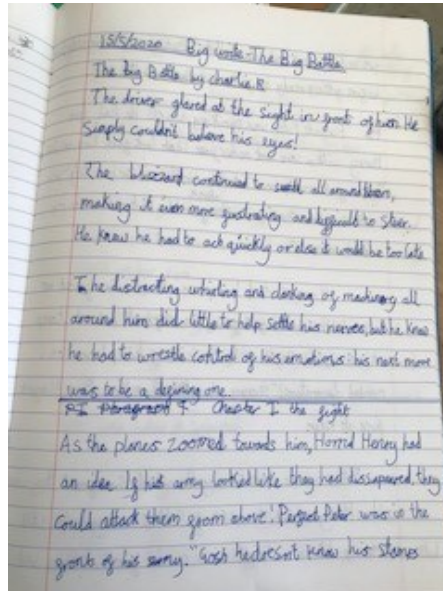 15/5/2020 Big write - The Big Battle
The big Battle by charlie.R
The driver glared at the sight in front of him. He
Simply couldn't believe his eyes!
The blizzard continued to swirl all around him,
making it even more frustrating and difficult to steer.
He knew he had to act quickly or else it would be too late
The distracting whistling and clanking of machinery all
around him did little to help settle his nerves, but he knew
he had to wrestle control of his emotions: his next move
was to be a defining one.
Chapter I the fight
As the planes zoomed towards him, Horrid Henry had
an idea. If his army looked like they had dissapeared, they
Could attack them from above! Perfect Peter was in the
front of his army. "Gosh he doesn't know his